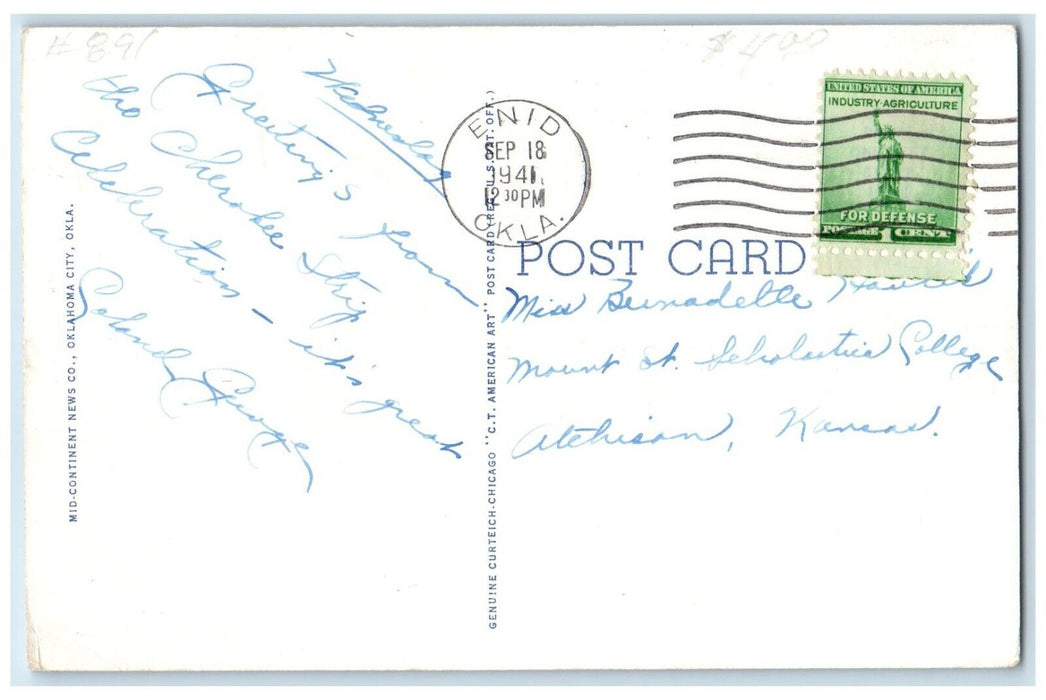 #891
$4.00
Wednesday
Greeting's from
the Cherokee Strip
Celebration - it's great
George
ENID
SEP 18
1941
12 30 PM
OKLA.
UNITED STATES OF AMERICA
INDUSTRY·AGRICULTURE
FOR DEFENSE
POSTAGE 1 CENT
POST CARD
Miss Bernadette
Mount St. Scholastica College
Atchison, Kansas.
MID-CONTINENT NEWS CO., OKLAHOMA CITY, OKLA.
GENUINE CURTEICH-CHICAGO "C.T. AMERICAN ART" POST CARD (REG. U.S. PAT. OFF.)